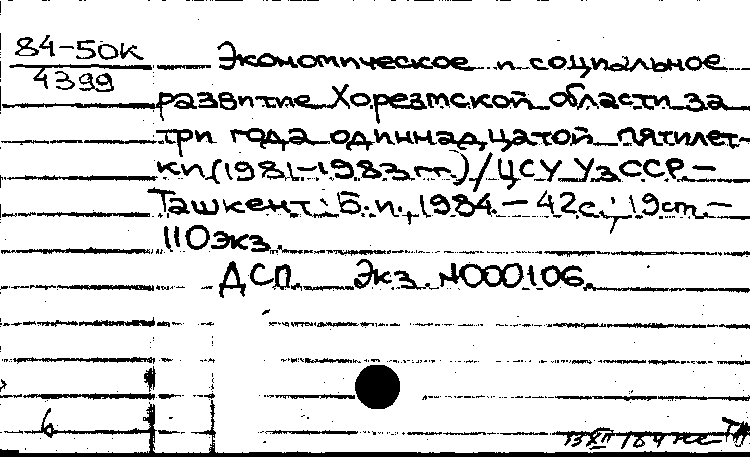 84-50к
4399
Экономическое и социальное
развитие Хорезмской области за
три года одиннадцатой пятилет-
ки (1981-1983гг.)/ЦСУ УзССР.-
Ташкент: Б.и., 1984.- 42с.; 19см.-
110экз.
ДСП. Экз. N000106.
6
13 XII 184